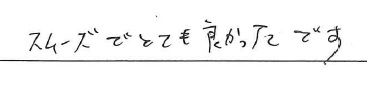 スムーズでとても良かったです